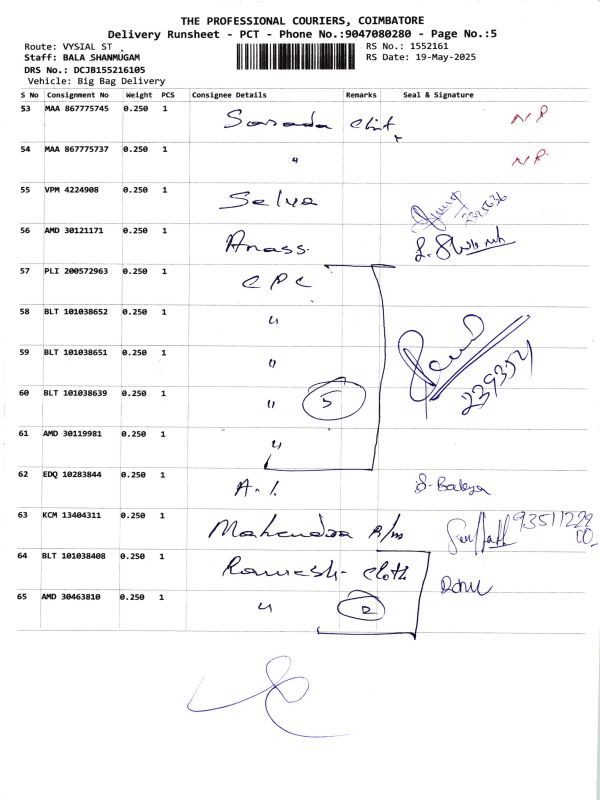 THE PROFESSIONAL COURIERS, COIMBATORE
Delivery Runsheet - PCT - Phone No.:9047080280 - Page No.:5
Route: VYSIAL ST . RS No.: 1552161
Staff: BALA SHANMUGAM RS Date: 19-May-2025
DRS No.: DCJB155216105
Vehicle: Big Bag Delivery
S No Consignment No Weight PCS Consignee Details Remarks Seal & Signature
53 MAA 867775745 0.250 1 Sarada N.P
54 MAA 867775737 0.250 1 " N.P.
55 VPM 4224908 0.250 1 Selva
56 AMD 30121171 0.250 1 Anass.
57 PLI 200572963 0.250 1 CPC
58 BLT 101038652 0.250 1 "
59 BLT 101038651 0.250 1 "
60 BLT 101038639 0.250 1 " 5 239354
61 AMD 30119981 0.250 1 "
62 EDQ 10283844 0.250 1 A.1. S. Bakya
63 KCM 13404311 0.250 1 Mahendra R/m 93511229
00
64 BLT 101038408 0.250 1 Ramesh Cloth
65 AMD 30463810 0.250 1 " 2